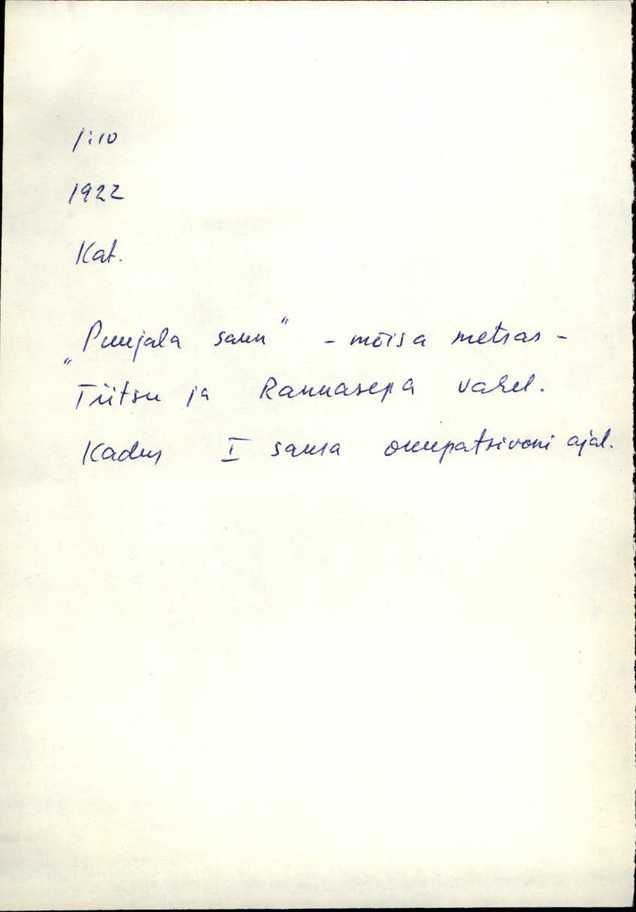 1:10
1922
Kat.
„Puujala saun" - mõisa metsas -
Tiitsu ja Rannasepa vahel.
Kadus I saksa okupatsiooni ajal.